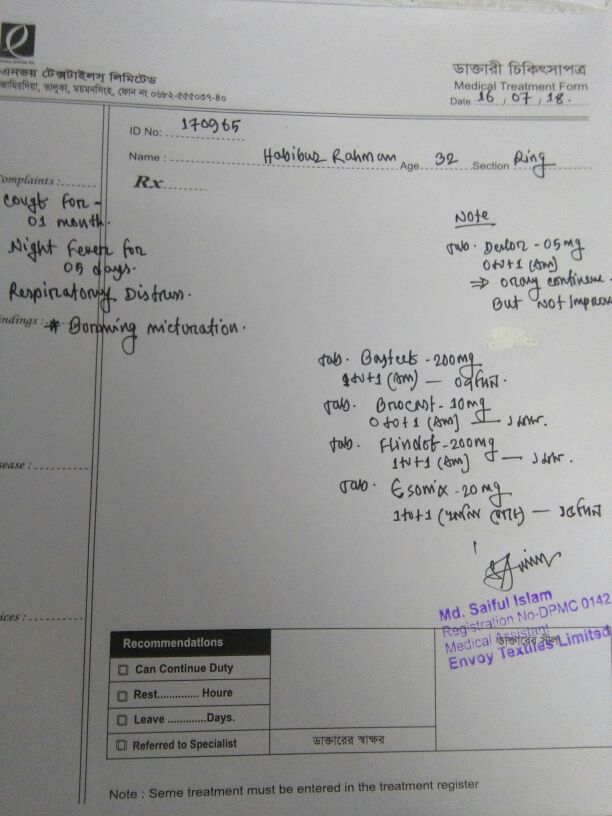 এনভয় টেক্সটাইলস্ লিমিটেড
জামিরদিয়া, ভালুকা, ময়মনসিংহ, ফোন নং ০৬৮২-৫৫৫০৩৭-৪০
ডাক্তারী চিকিৎসাপত্র
Medical Treatment Form
Date 16 / 07 / 18.
ID No: 170965
Name : Habibur Rahman Age 32 Section Ring
omplaints :
Rx
Cough for -
01 month.
Night Fever for
05 days.
Respiratory Distress.
indings :
* Borning micturation.
Note
Tab. Deslor - 05mg
0+0+1 (Am)
⇒ continue
But Not Improve
Tab. - 200mg
1+0+1 (Am) —
Tab. - 10mg
0+0+1 (Am) —
Tab. - 200mg
1+0+1 (Am) —
Tab. Esomix - 20mg
1+0+1
sease :
ices :
Md. Saiful Islam
Registration No-DPMC 0142
Medical Assistant
Envoy Textiles Limited
ডাক্তারের সীল
Recommendations
Can Continue Duty
Rest.............. Houre
Leave .............Days.
Referred to Specialist
ডাক্তারের স্বাক্ষর
Note : Seme treatment must be entered in the treatment register